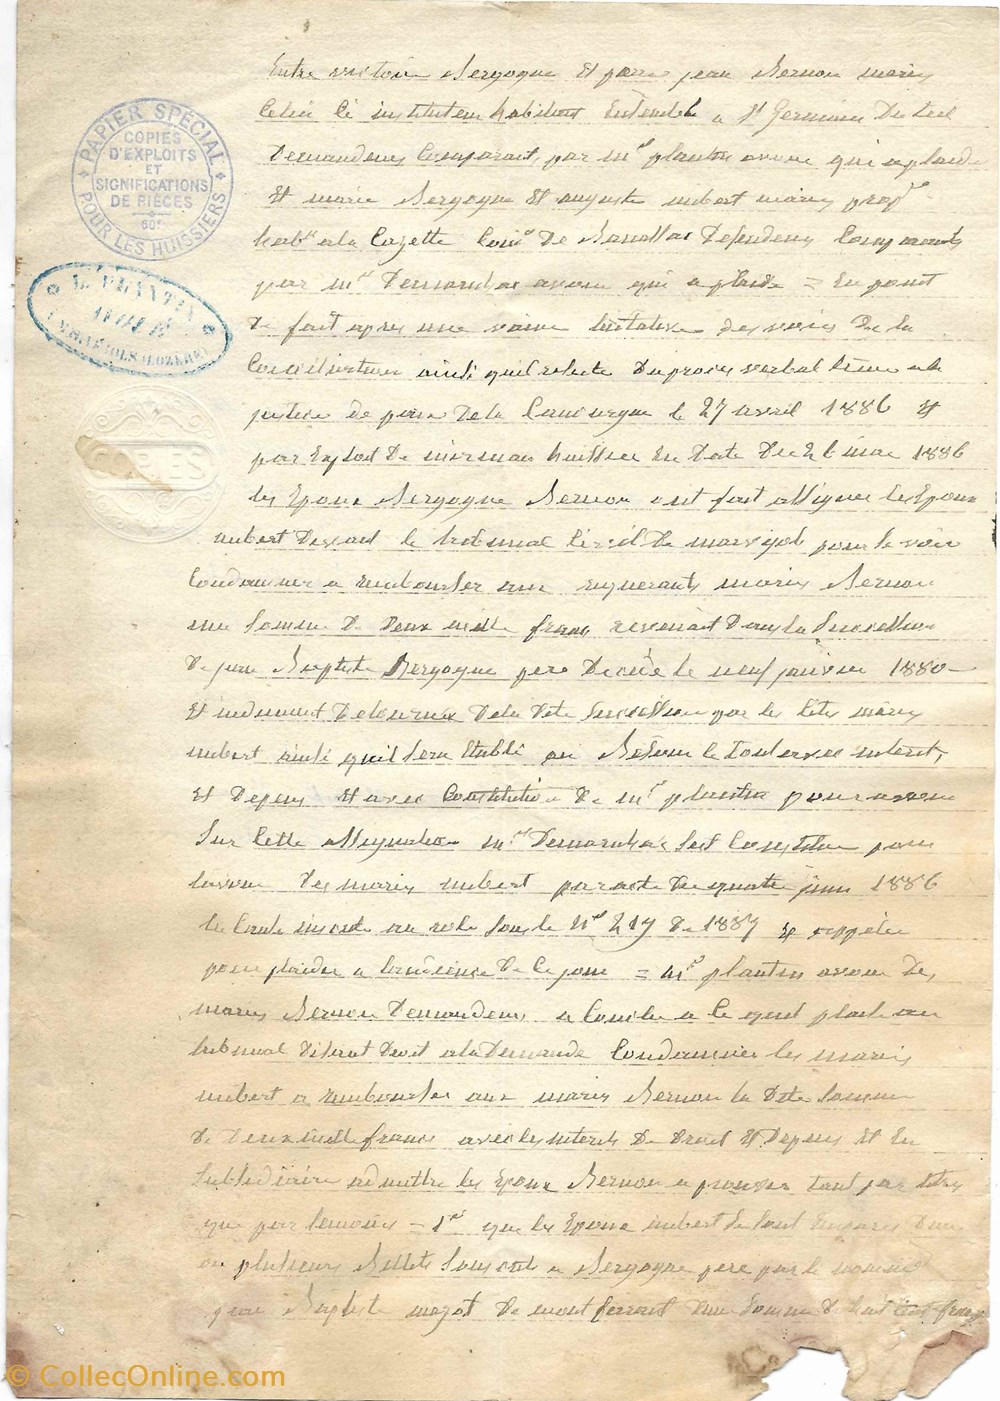 PAPIER SPÉCIAL
POUR LES HUISSIERS
COPIES
D'EXPLOITS
ET
SIGNIFICATIONS
DE PIÈCES
60c
COPIES
Entre victoire Bergogne et pierre jean Bernon mariés
instituteur habitant Ensemble a St Germain Du teil
Demandeurs Comparait par me plantin avoue qui a plaidé
Et marie Bergogne Et auguste imbert mariés prop
habts a la Cazette Come De Banassac Defendeurs Comparants
par me avoue qui a plaidé = En point
De fait apres une vaine tentative des voies De la
Conciliation ainsi quil resulte Du proces verbal a la
justice de paix De la Canourgue le 27 avril 1886 et
par Exploit De huissier En Date Du 26 mai 1886
les Epoux Bergogne Bernon ont fait assigner les Epoux
imbert Devant le tribunal Civil De marvejols pour se voir
Condamner a rembourser aux requerants mariés Bernon
une somme De Deux mille francs revenant Dans la succession
De jean Baptiste Bergogne pere Decedé le neuf janvier 1880
Et indument De la Dite succession par les Dits mariés
imbert ainsi quil sera Etabli au Besoin le tout avec interets
Et Depens Et avec Constitution De me plantin pour avoue
Sur Cette assignation me sest Constitué pour
avoue Des mariés imbert par acte Du quatre juin 1886
la Cause inscrite au role sous le No 217 De 1887 et appelée
pour plaider a laudience De Ce jour = me plantin avoue Des
mariés Bernon Demandeurs a Conclu a Ce quil plaise au
tribunal Disant Droit a la Demande Condamner les mariés
imbert a rembourser aux mariés Bernon la Dite somme
De Deux mille francs avec les interets De Droit Et Depens Et En
subsidiaire admettre les Epoux Bernon a prouver tant par titres
que par temoins = 1er que les Epoux imbert se sont Emparés Dun
ou plusieurs Billets souscrits a Bergogne pere par le nommé
jean Baptiste De montferrand Dune somme De huit Cent francs
© CollecOnline.com